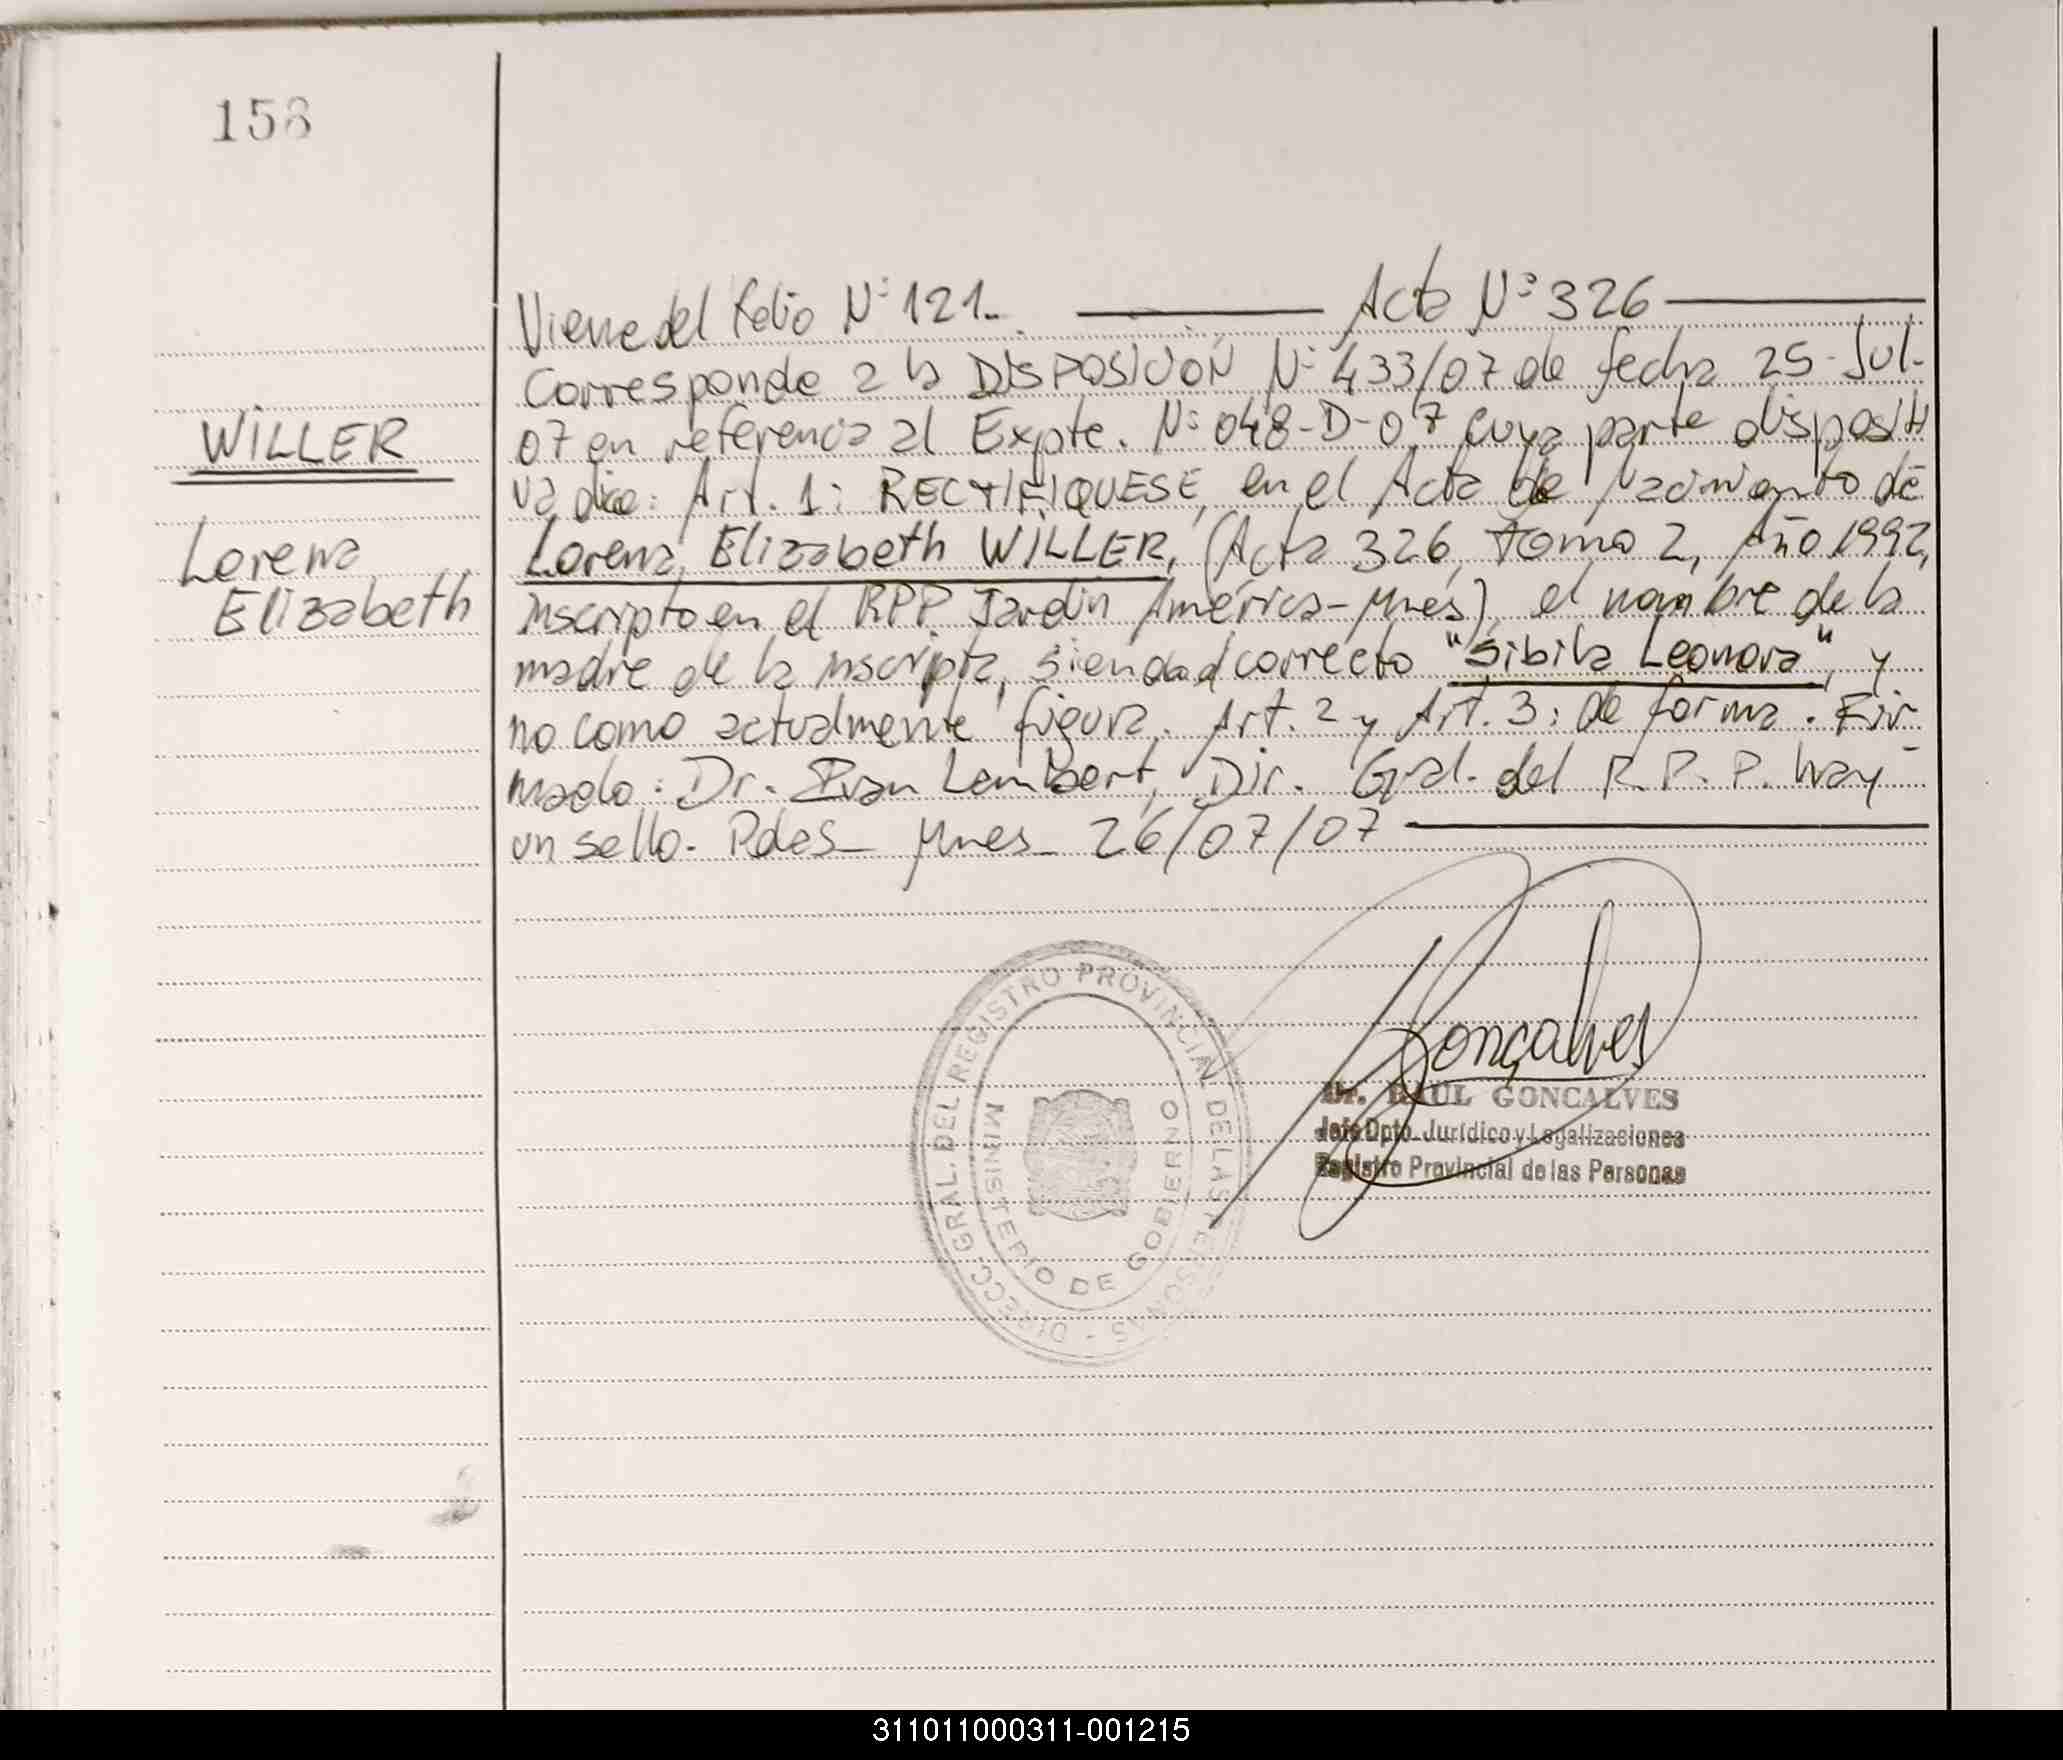 158
Viene del folio Nº 121. Acta Nº 326
Corresponde a la DISPOSICIÓN Nº 433/07 de fecha 25-Jul-
07 en referencia al Expte. Nº 048-D-07 cuya parte dispositi
va dice: Art. 1: RECTIFIQUESE, en el Acta de Nacimiento de
Lorena Elizabeth WILLER, (Acta 326, Tomo 2, Año 1992,
inscripto en el RPP. Jardin América-Mnes), el nombre de la
madre de la inscripta, siendo el correcto "Sibila Leonora", y
no como actualmente figura. Art. 2 y Art. 3: de forma. Fir
mado: Dr. Ivan Lambert, Dir. Gral. del R.P.P. hay
un sello. Pdas_ Mnes_ 26/07/07
WILLER
Lorena
Elizabeth
DIRECC. GRAL. DEL REGISTRO PROVINCIAL DE LAS PERSONAS -
MINISTERIO DE GOBIERNO
Gonçalves
Dr. RAUL GONCALVES
Jefe Dpto. Jurídico y Legalizaciones
Registro Provincial de las Personas
311011000311-001215